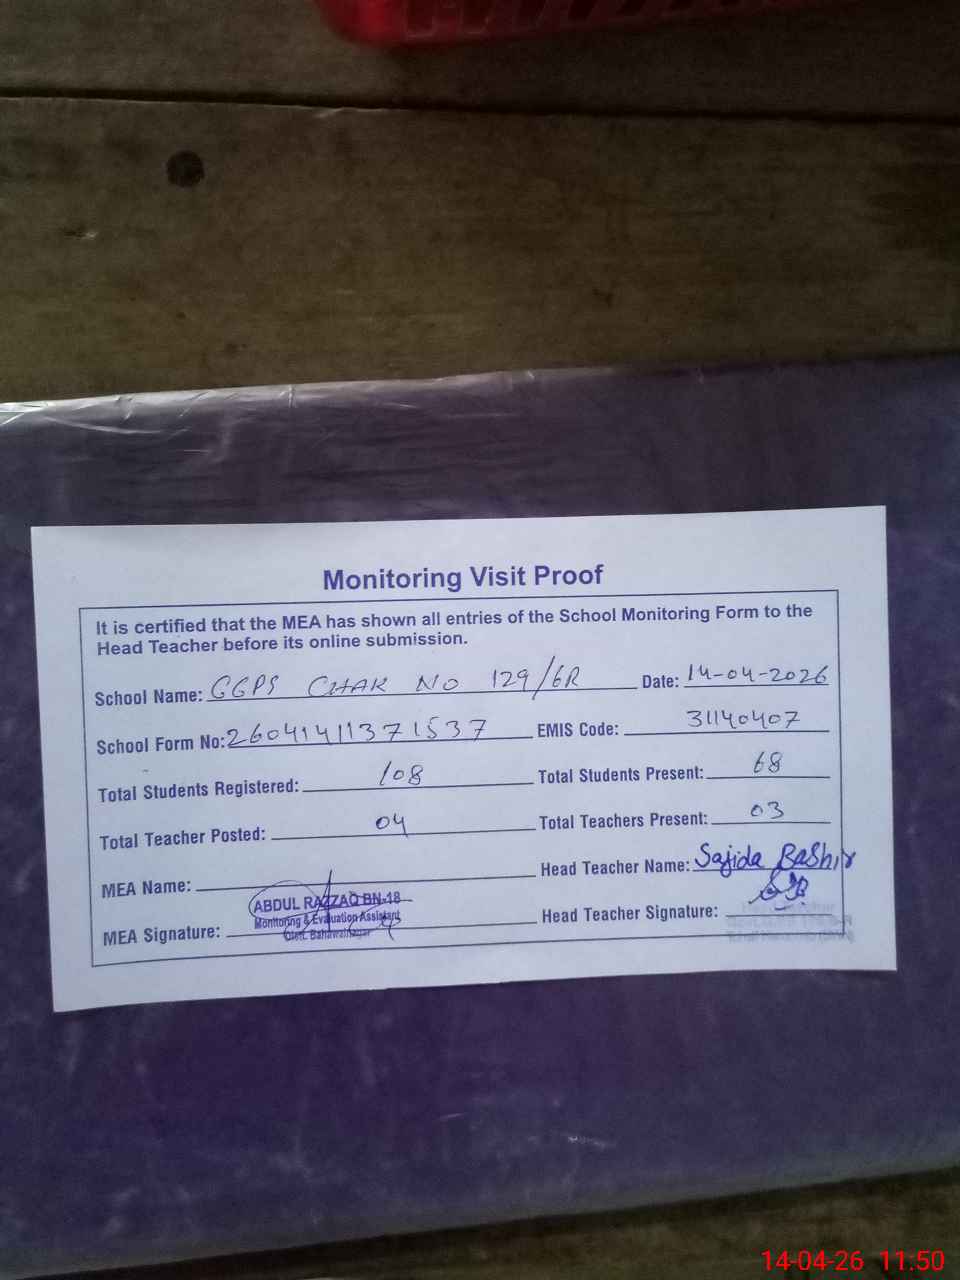 Monitoring Visit Proof
It is certified that the MEA has shown all entries of the School Monitoring Form to the
Head Teacher before its online submission.
School Name: GGPS CHAK NO 129/6R Date: 14-04-2026
School Form No: 26041411371537 EMIS Code: 31140407
Total Students Registered: 108 Total Students Present: 68
Total Teacher Posted: 04 Total Teachers Present: 03
MEA Name: Head Teacher Name: Sajida Bashir
ABDUL RAZZAQ BN-18
Monitoring & Evaluation Assistant
Distt. Bahawalnagar
MEA Signature: Head Teacher Signature:
14-04-26 11:50